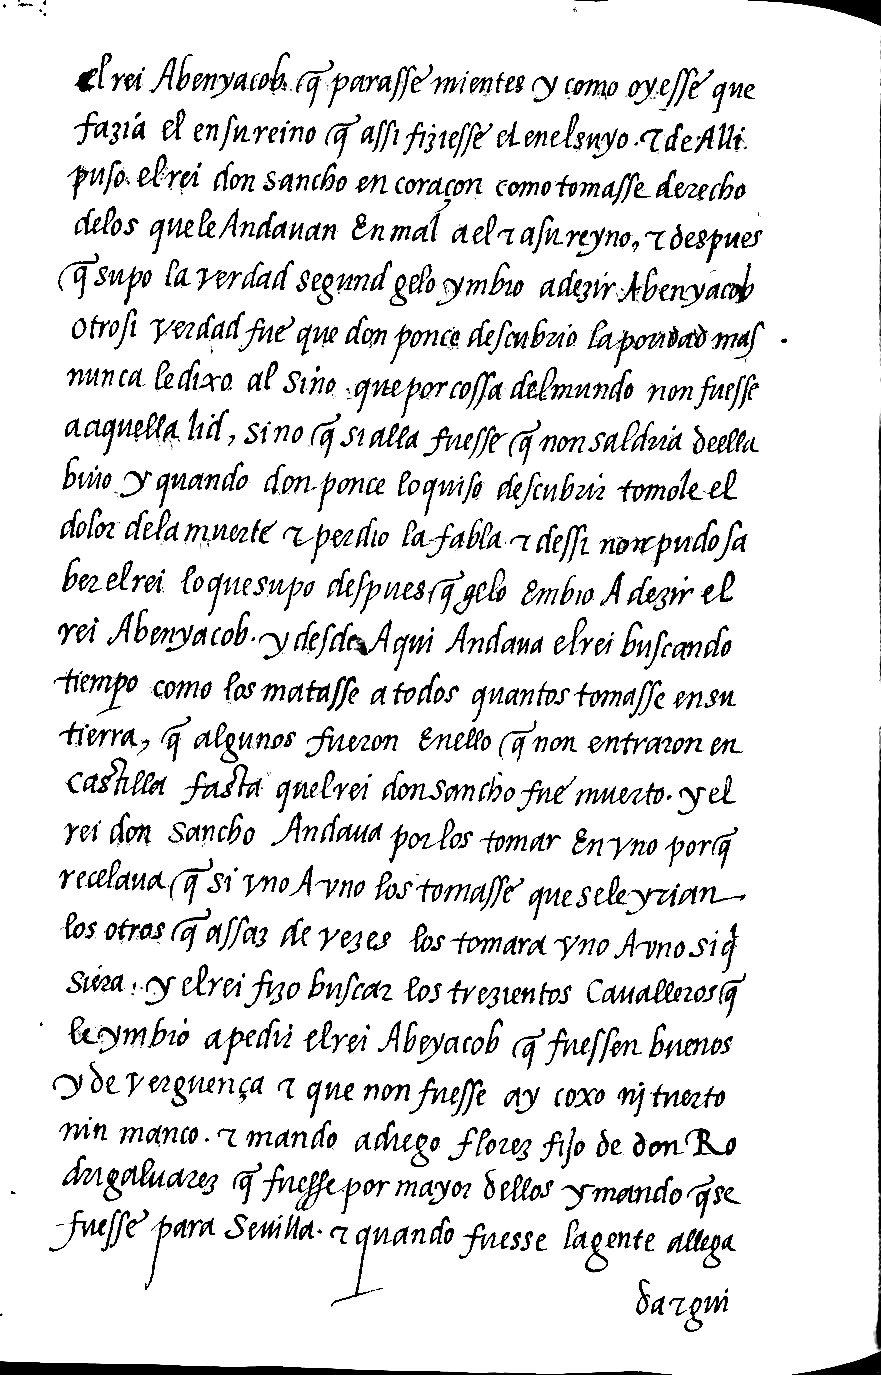 el rei Abenyacob. q̃ parasse mientes y como oyesse que
fazia el en su reino q̃ assi fiziesse el enel suyo. τ de Alli.
puso. el rei don sancho en coraçon como tomasse derecho
delos que le Andauan En mal a el τ a su reyno, τ despues
q̃ supo la verdad segund gelo ymbio a dezir Abenyacob
otrosi verdad fue que don ponce descubrio la poridad mas
nunca le dixo al sino que por cossa del mundo non fuesse
a aquella lid, sino q̃ si alla fuesse q̃ non saldria deella
biuo y quando don ponce lo quiso descubrir tomole el
dolor dela muerte τ perdio la fabla τ dessi non pudo sa
ber el rei lo que supo despues q̃ gelo Embio A dezir el
rei Abenyacob. y desde Aqui Andaua el rei buscando
tiempo como los matasse a todos quantos tomasse en su
tierra, q̃ algunos fueron Enello q̃ non entraron en
castilla fasta quel rei don sancho fue muerto. y el
rei don sancho Andaua por los tomar En vno porq̃
recelaua q̃ si vno A vno los tomasse que sele yrian
los otros q̃ assaz de vezes los tomara vno A vno si q̃
siera. y el rei fizo buscar los trezientos Caualleros q̃
le ymbio a pedir el rei Abeyacob q̃ fuessen buenos
y de verguença τ que non fuesse ay coxo nj tuerto
nin manco. τ mando a diego florez fijo de don Ro
drigaluarez q̃ fuesse por mayor dellos y mando q̃ se
fuesse para Seuilla. τ quando fuesse la gente allega
da τ gui